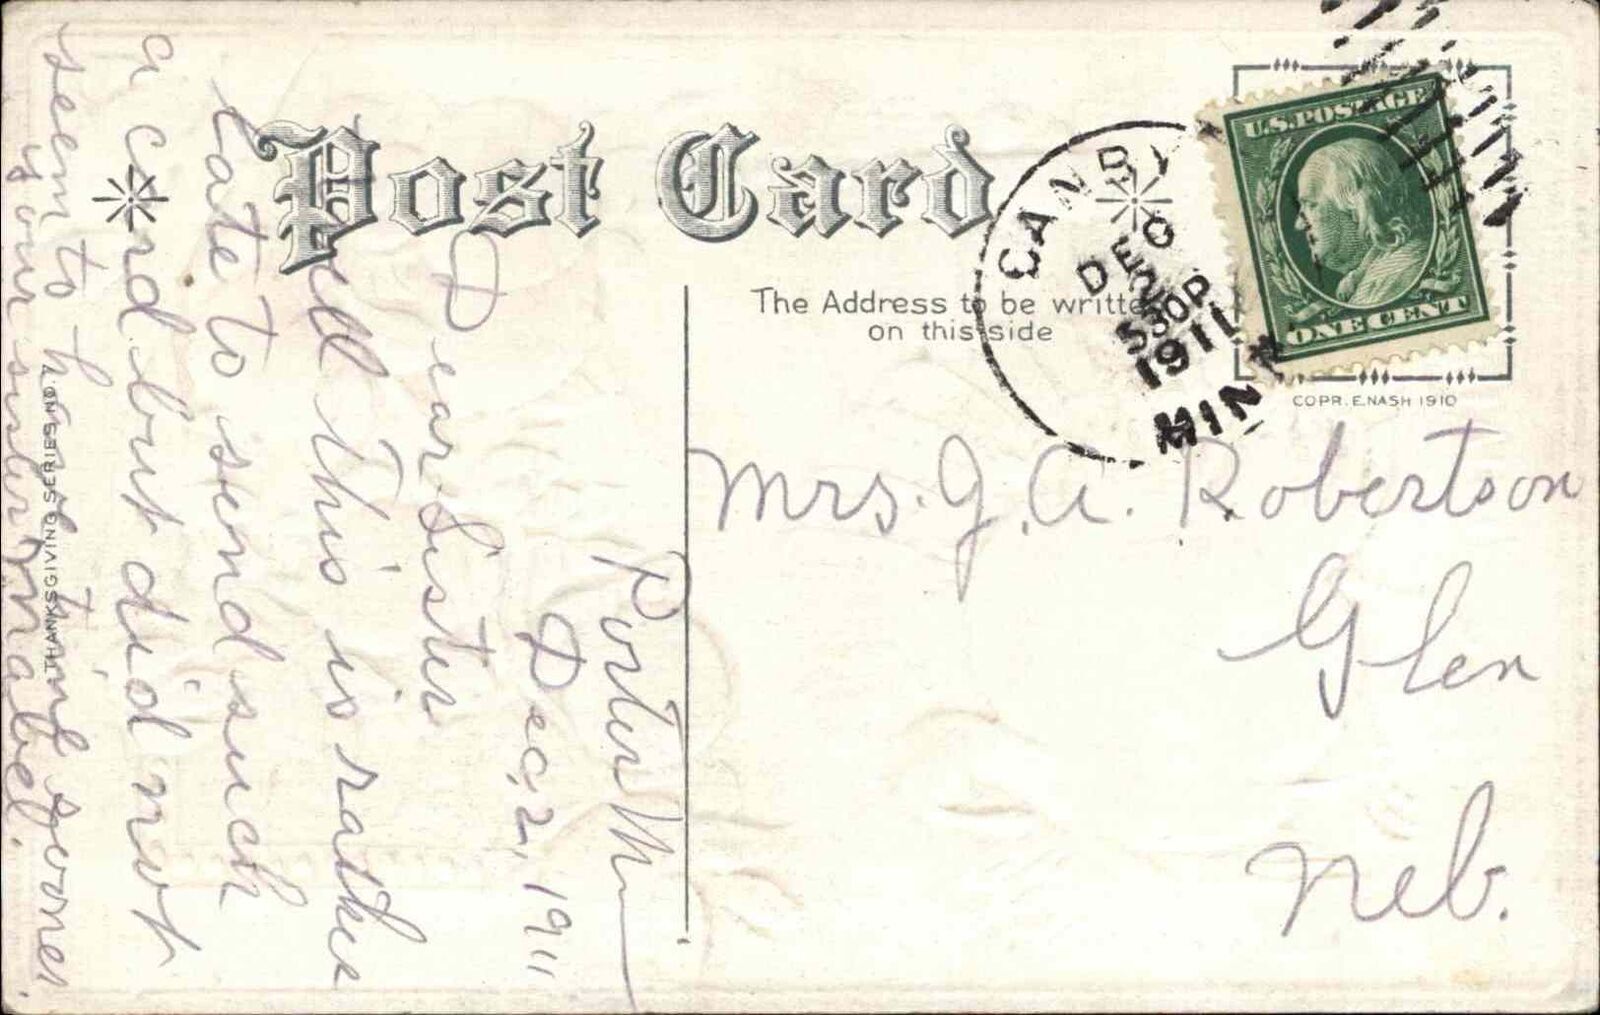 Post Card
The Address to be written
on this side
CANBY
DEC
2
530P
1911
MINN
U.S. POSTAGE
ONE CENT
COPR. E. NASH 1910
Mrs. J. A. Robertson
Glen
Neb.
Porter Minn
Dec, 2, 1911
Dear Sister
Well this is rather
late to send such
a card but did not
seem to have time sooner.
your sister Mabel.
THANKSGIVING SERIES NO. 7